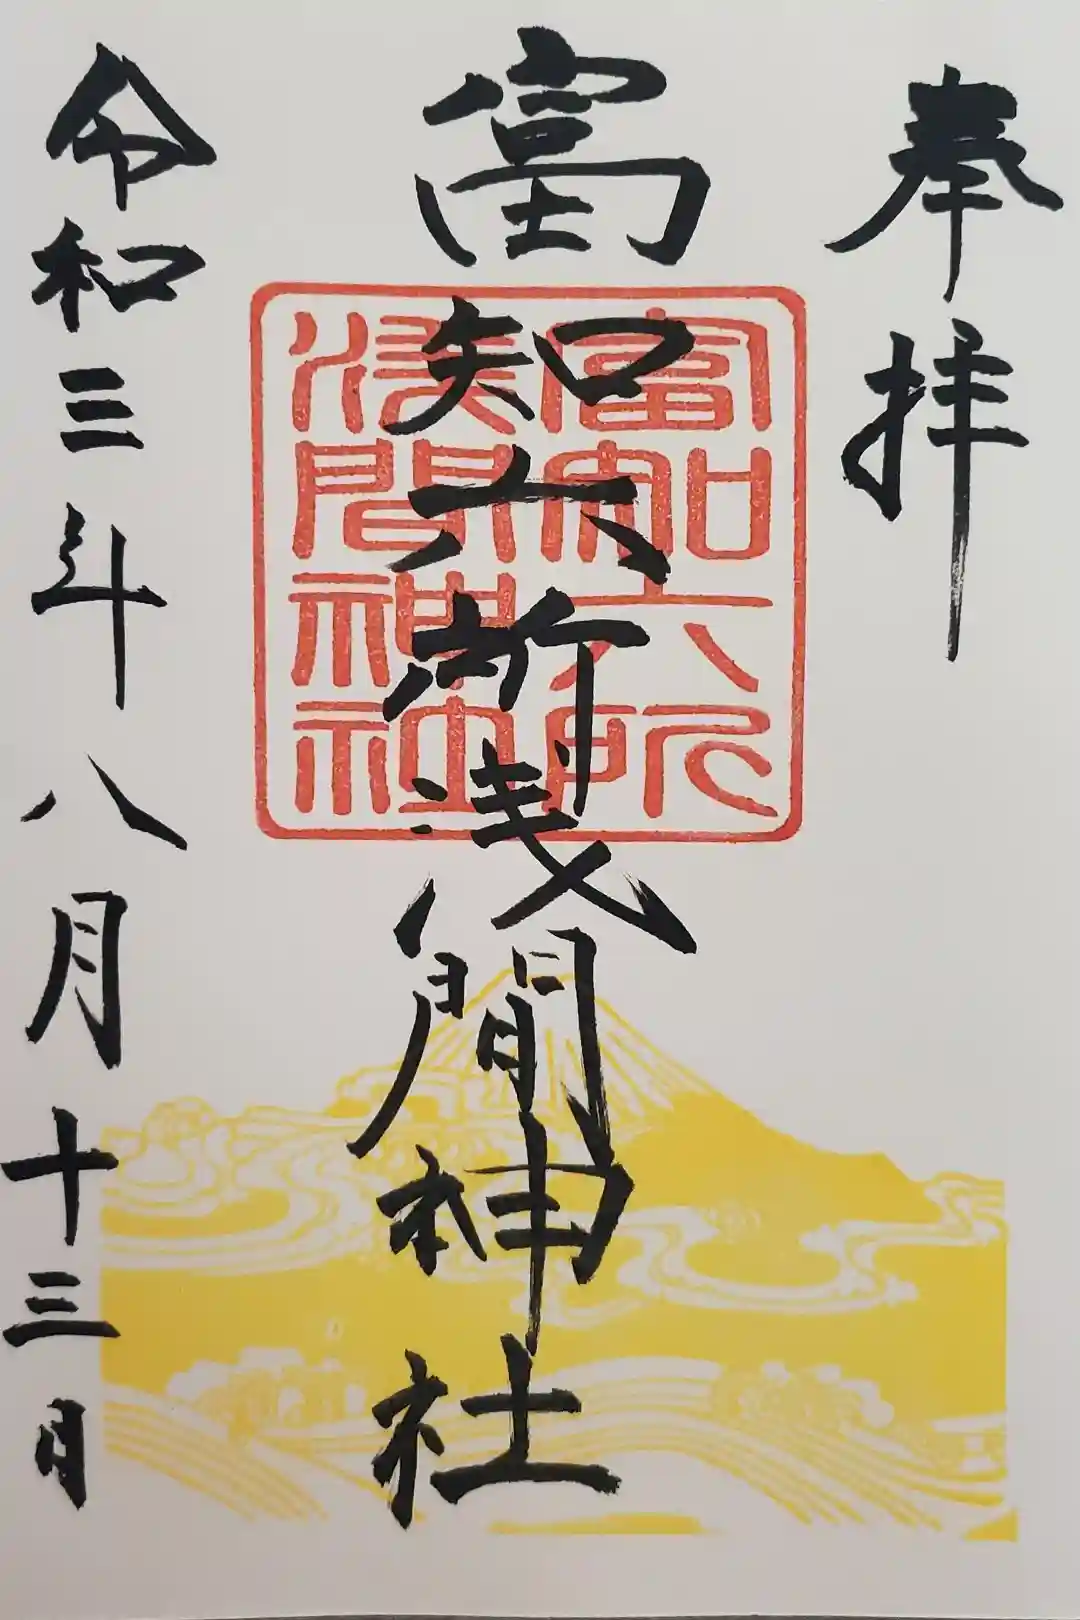 奉拝
富知六所浅間神社
令和三年八月十三日
富知六所
浅間神社